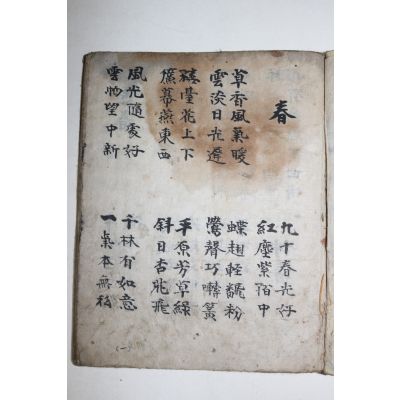 春
草香風氣暖
雲淡日光遲
樓臺花上下
簾幕燕東西
風光隨處好
雲物望中新
九十春光好
紅塵紫陌中
蝶翅輕飜粉
鶯聲巧囀簧
平原芳草綠
斜日杏花飛
千林有如意
一氣本無私